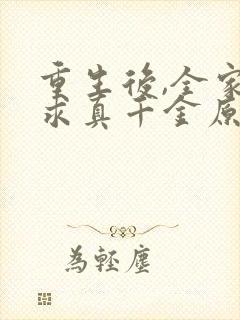 重生後,全家
求真千金原
為輕塵